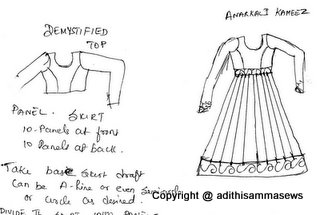 DEMYSTIFIED
TOP
ANARKALI KAMEEZ
PANEL SKIRT
10-Panels at front
10 Panels at back.
Take base skirt draft
Can be A-line or even
or circle as desired.
DIVIDE
Copyright @ adithisammasews